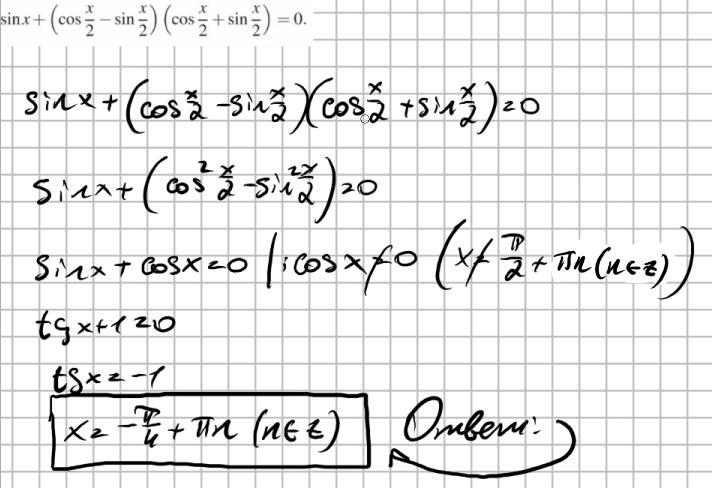 sin x + (cos x/2 − sin x/2) (cos x/2 + sin x/2) = 0.
sin x + (cos x/2 - sin x/2)(cos x/2 + sin x/2) = 0
sin x + (cos² x/2 - sin² x/2) = 0
sin x + cos x = 0 | : cos x ≠ 0 (x ≠ π/2 + πn (n ∈ Z))
tg x + 1 = 0
tg x = -1
x = -π/4 + πn (n ∈ Z) Ответ: